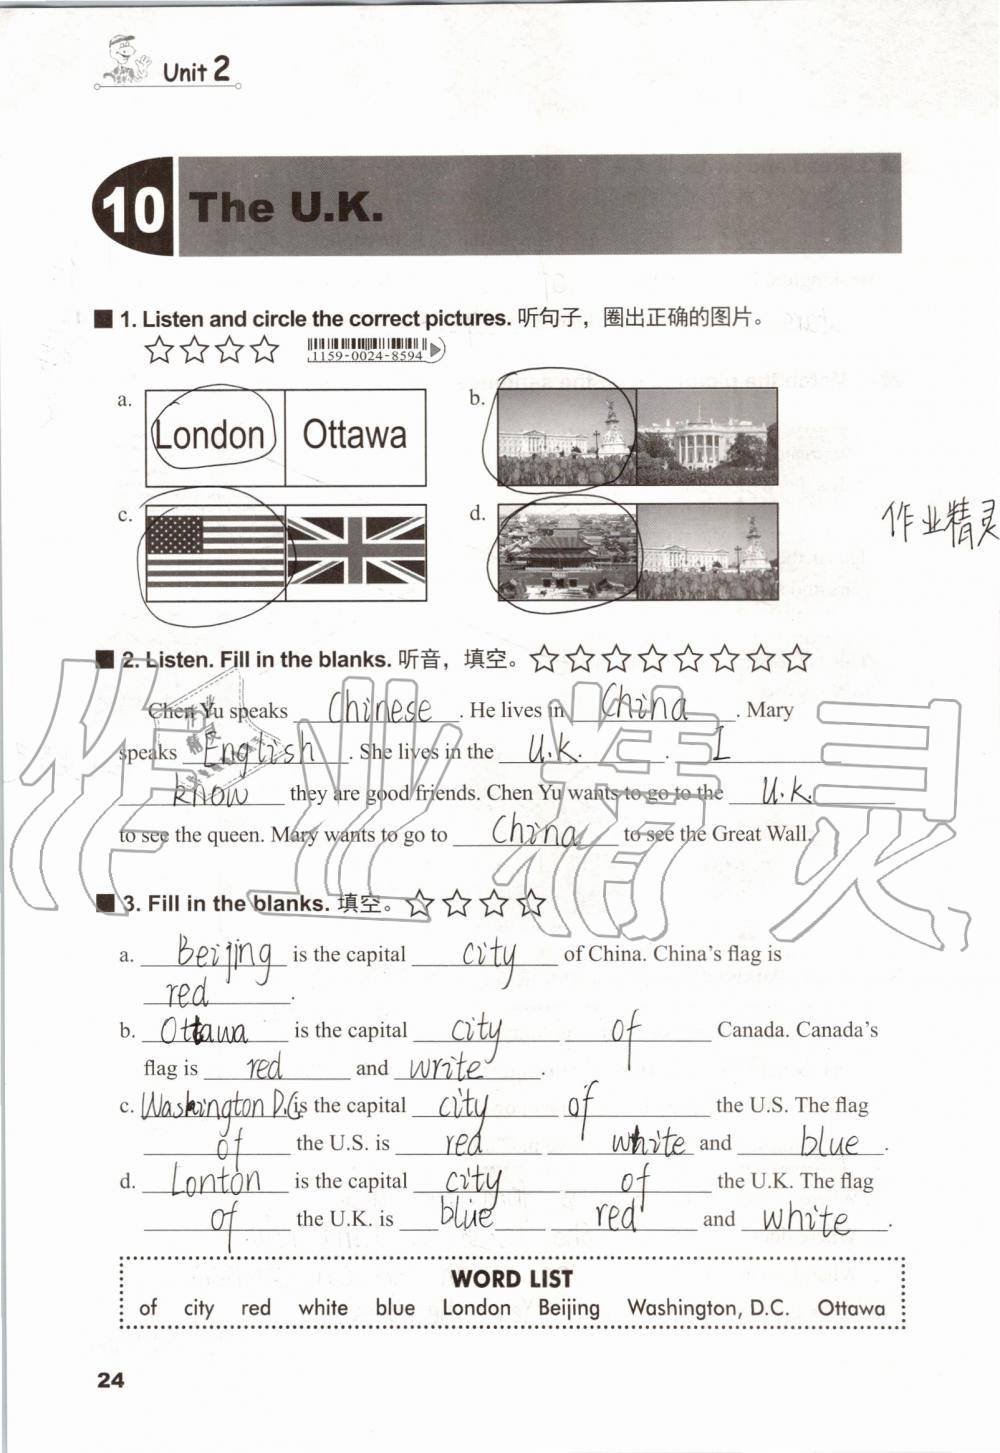 Unit 2
10 The U.K.
1. Listen and circle the correct pictures. 听句子，圈出正确的图片。
1159-0024-8594
a. London Ottawa b.
c. d.
作业精灵
2. Listen. Fill in the blanks. 听音，填空。
Chen Yu speaks Chinese. He lives in China. Mary
speaks English. She lives in the U.K. I
know they are good friends. Chen Yu wants to go to the U.K.
to see the queen. Mary wants to go to China to see the Great Wall.
作业精灵
3. Fill in the blanks. 填空。
a. Beijing is the capital city of China. China's flag is
red.
b. Ottawa is the capital city of Canada. Canada's
flag is red and write.
c. Washington D.C. is the capital city of the U.S. The flag
of the U.S. is red white and blue.
d. Lonton is the capital city of the U.K. The flag
of the U.K. is blue red and white.
WORD LIST
of city red white blue London Beijing Washington, D.C. Ottawa
24